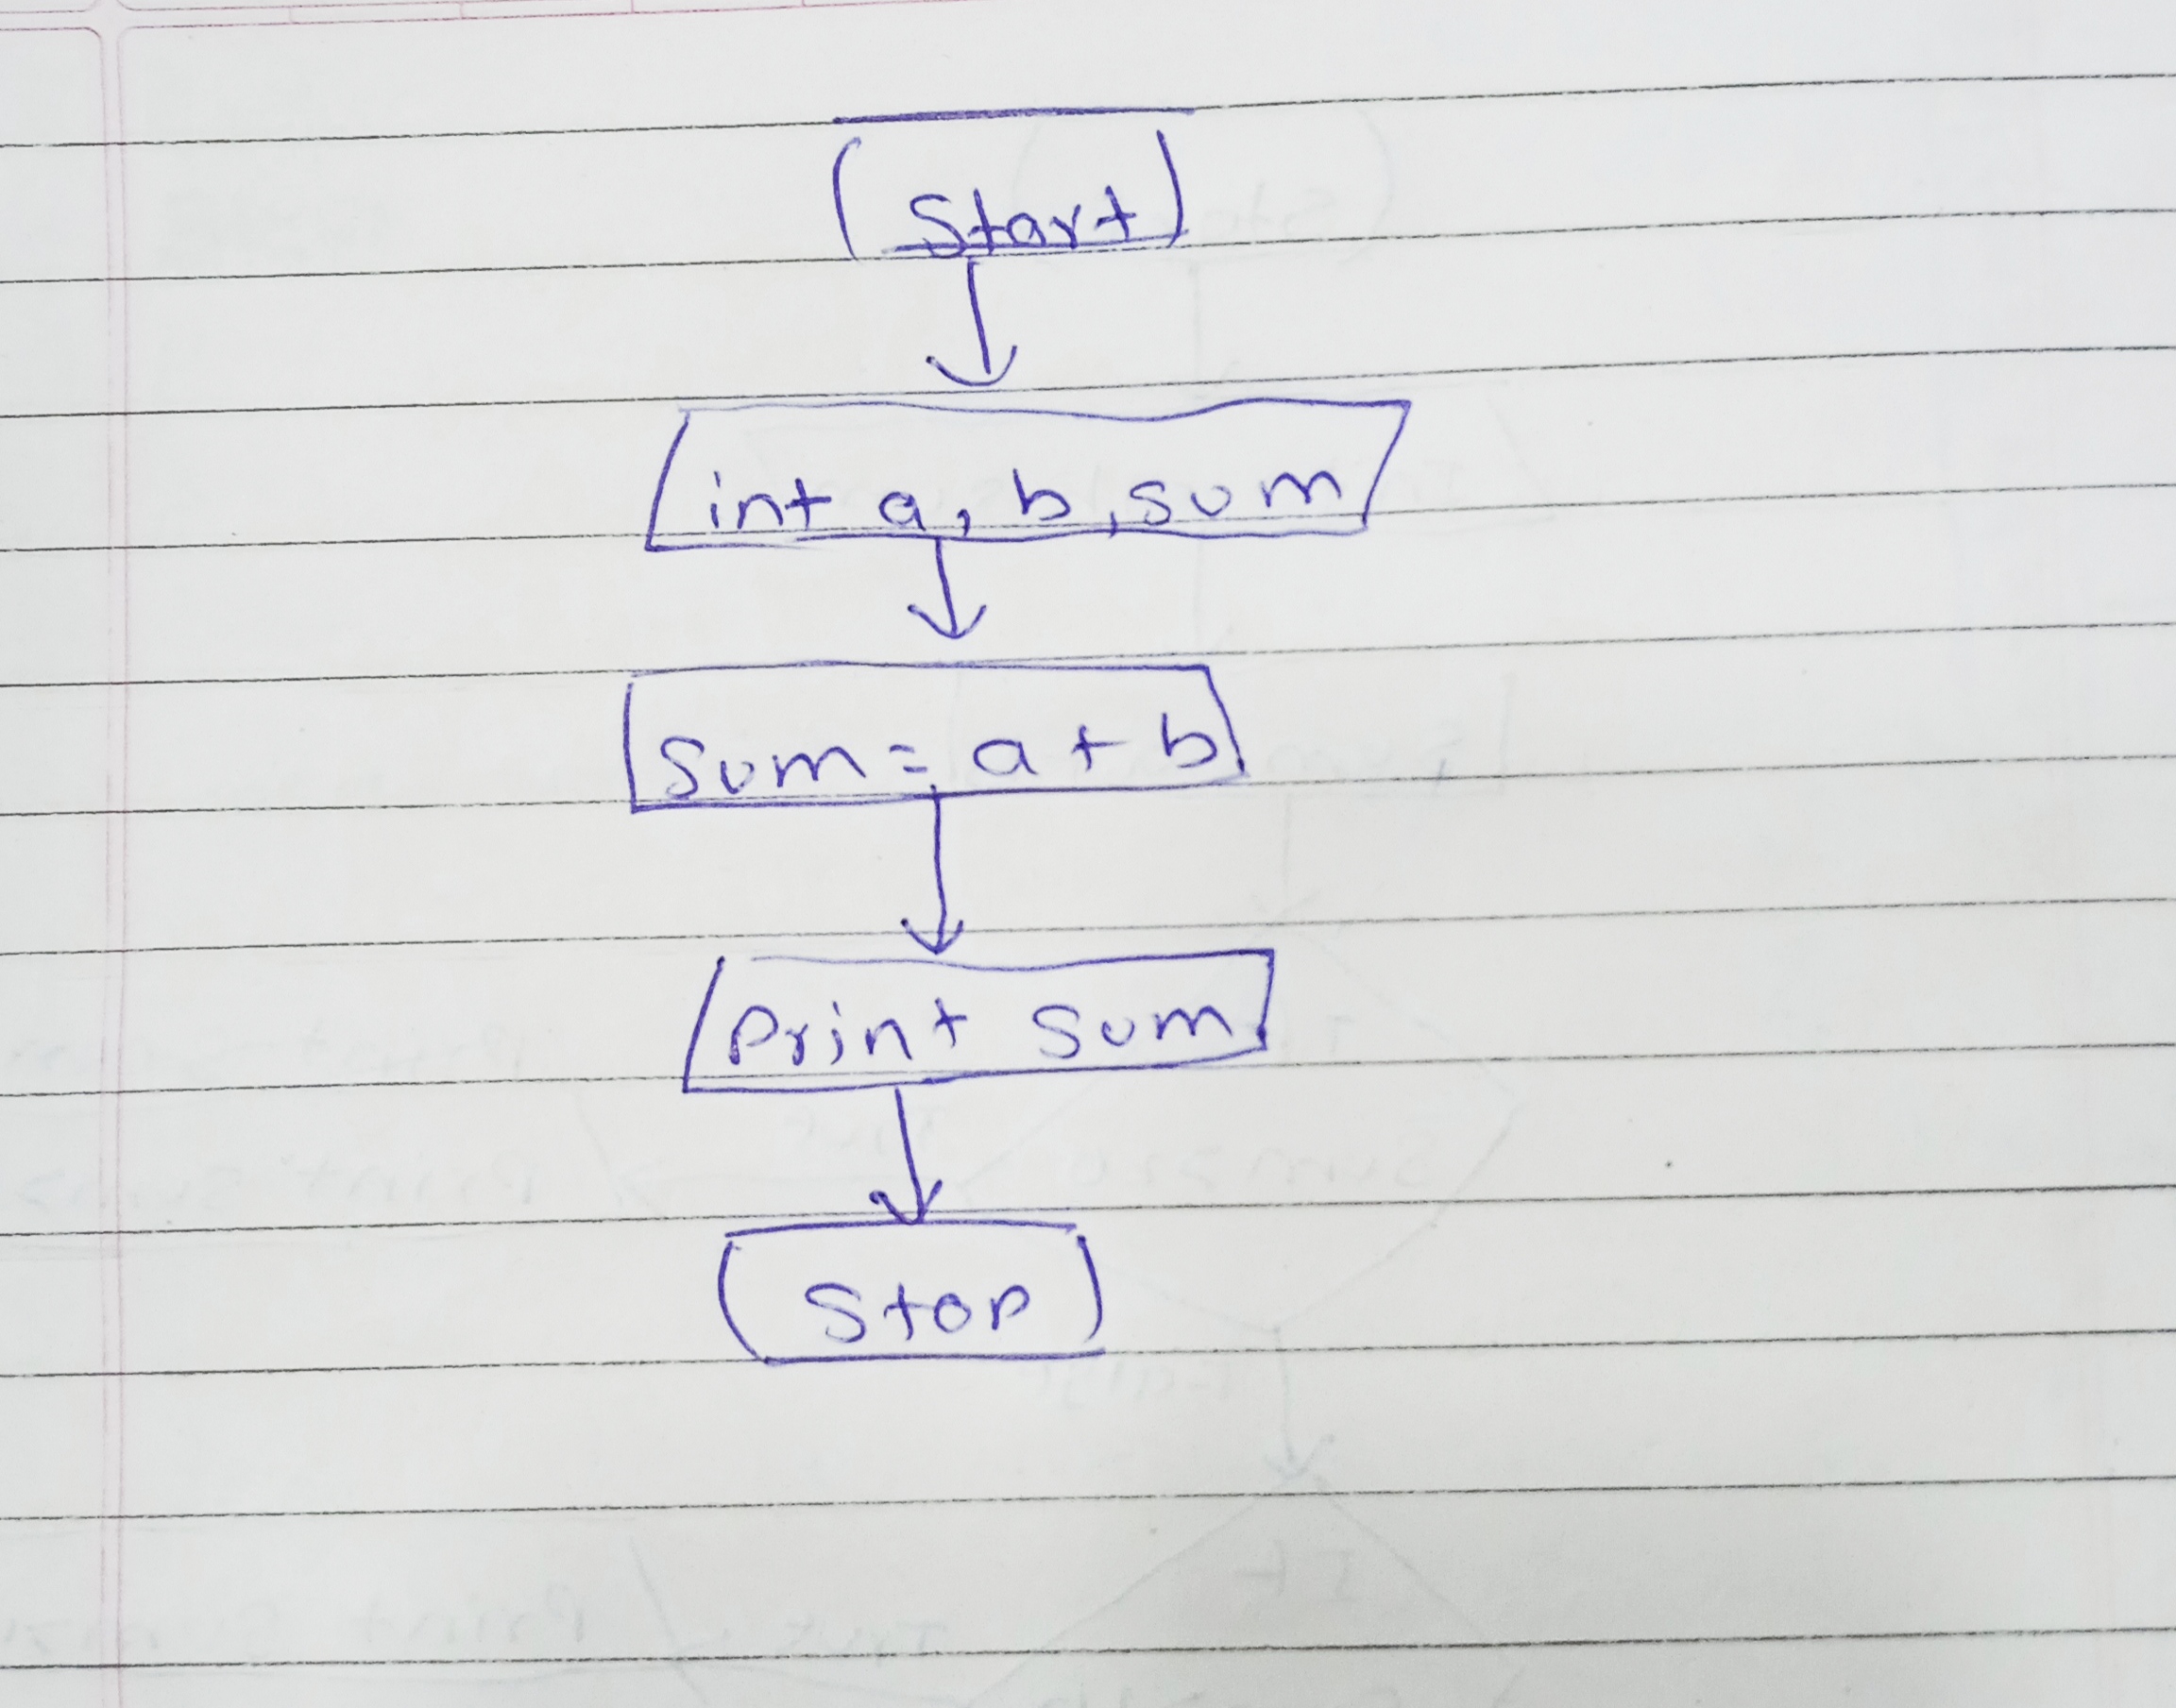 Start
int a, b, sum
Sum = a + b
Print Sum
Stop